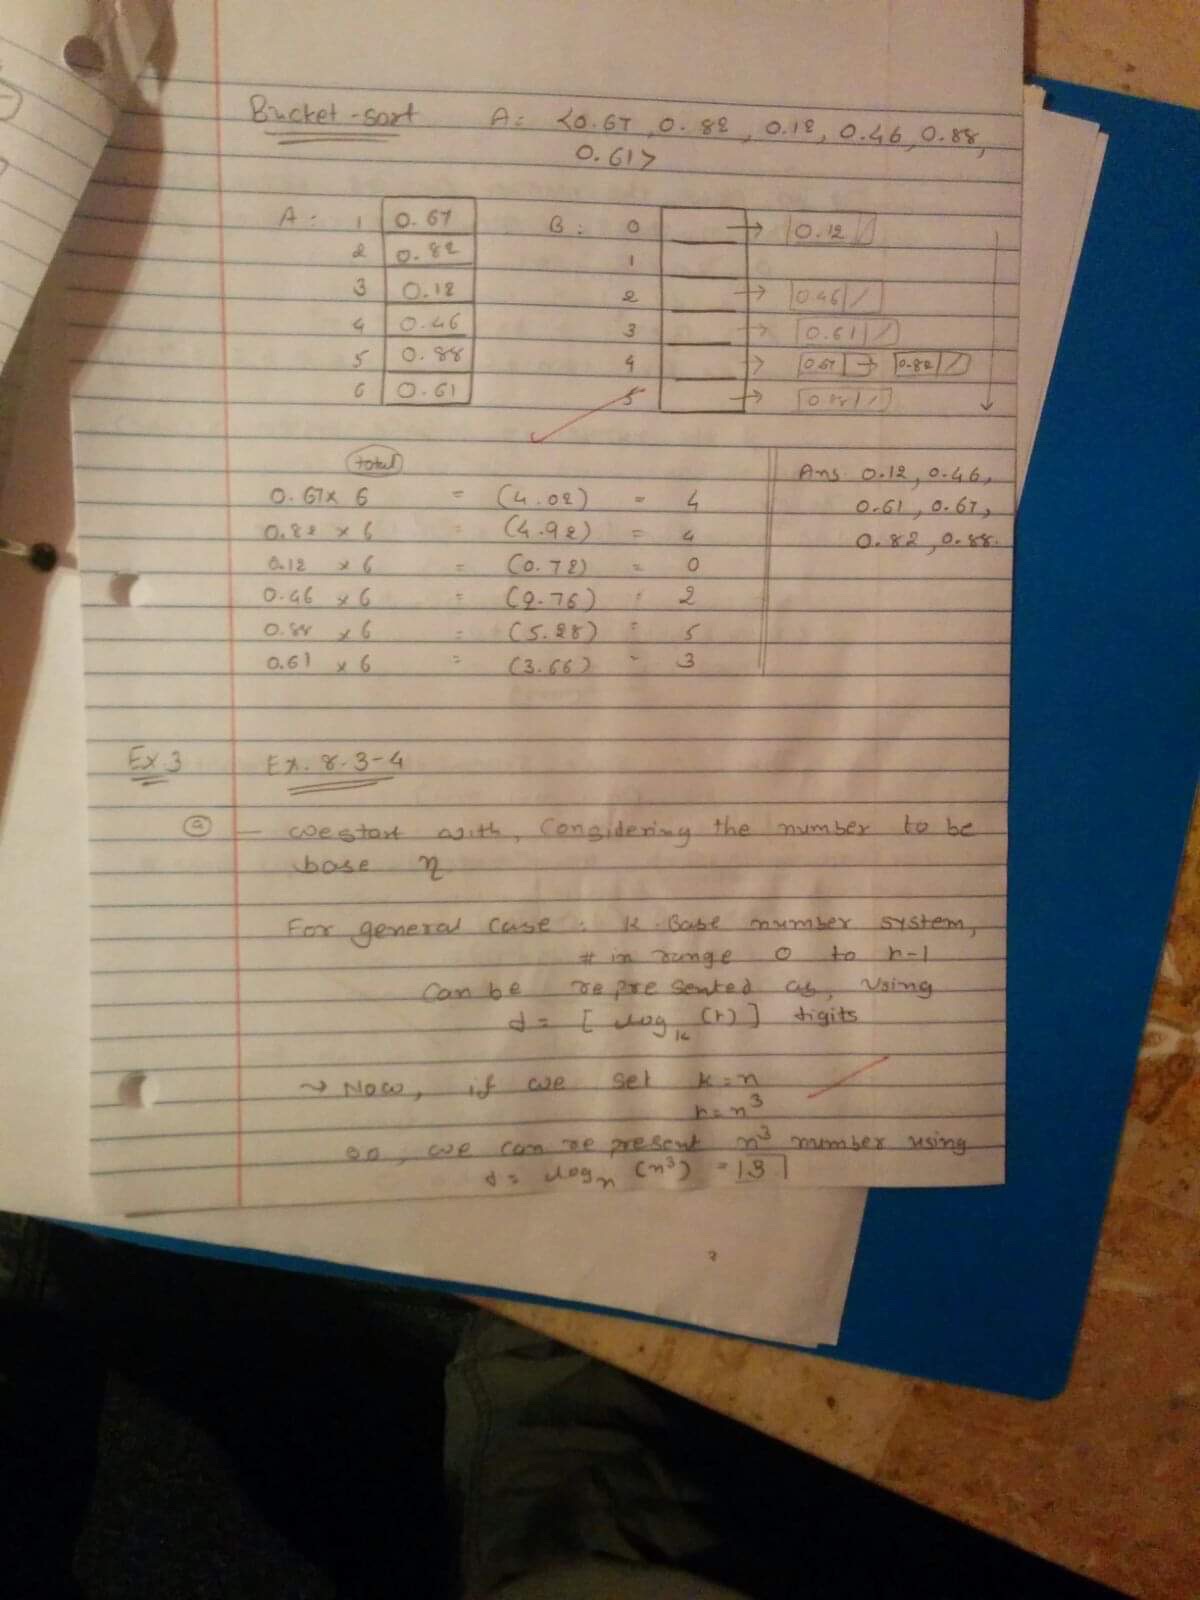 Bucket-sort A= <0.67, 0.82, 0.12, 0.46, 0.88,
0.61>
A: 1 0.67 B: 0 → 0.12 /
2 0.82 1
3 0.12 2 → 0.46 /
4 0.46 3 → 0.61 /
5 0.88 4 → 0.67 → 0.82 /
6 0.61 5 → 0.88 /
total
0.67 x 6 = (4.02) = 4
0.82 x 6 = (4.92) = 4
0.12 x 6 = (0.72) = 0
0.46 x 6 = (2.76) = 2
0.88 x 6 = (5.28) = 5
0.61 x 6 = (3.66) = 3
Ans. 0.12, 0.46,
0.61, 0.67,
0.82, 0.88.
Ex 3 Ex. 8.3-4
a - we start with, Considering the number to be
base n
For general case : k-Base number system,
# in range 0 to r-1
can be represented as, using
d = [ log k (r) ] digits
→ Now, if we set k=n
r=n³
so, we can represent n³ number using
d = log n (n³) = 3